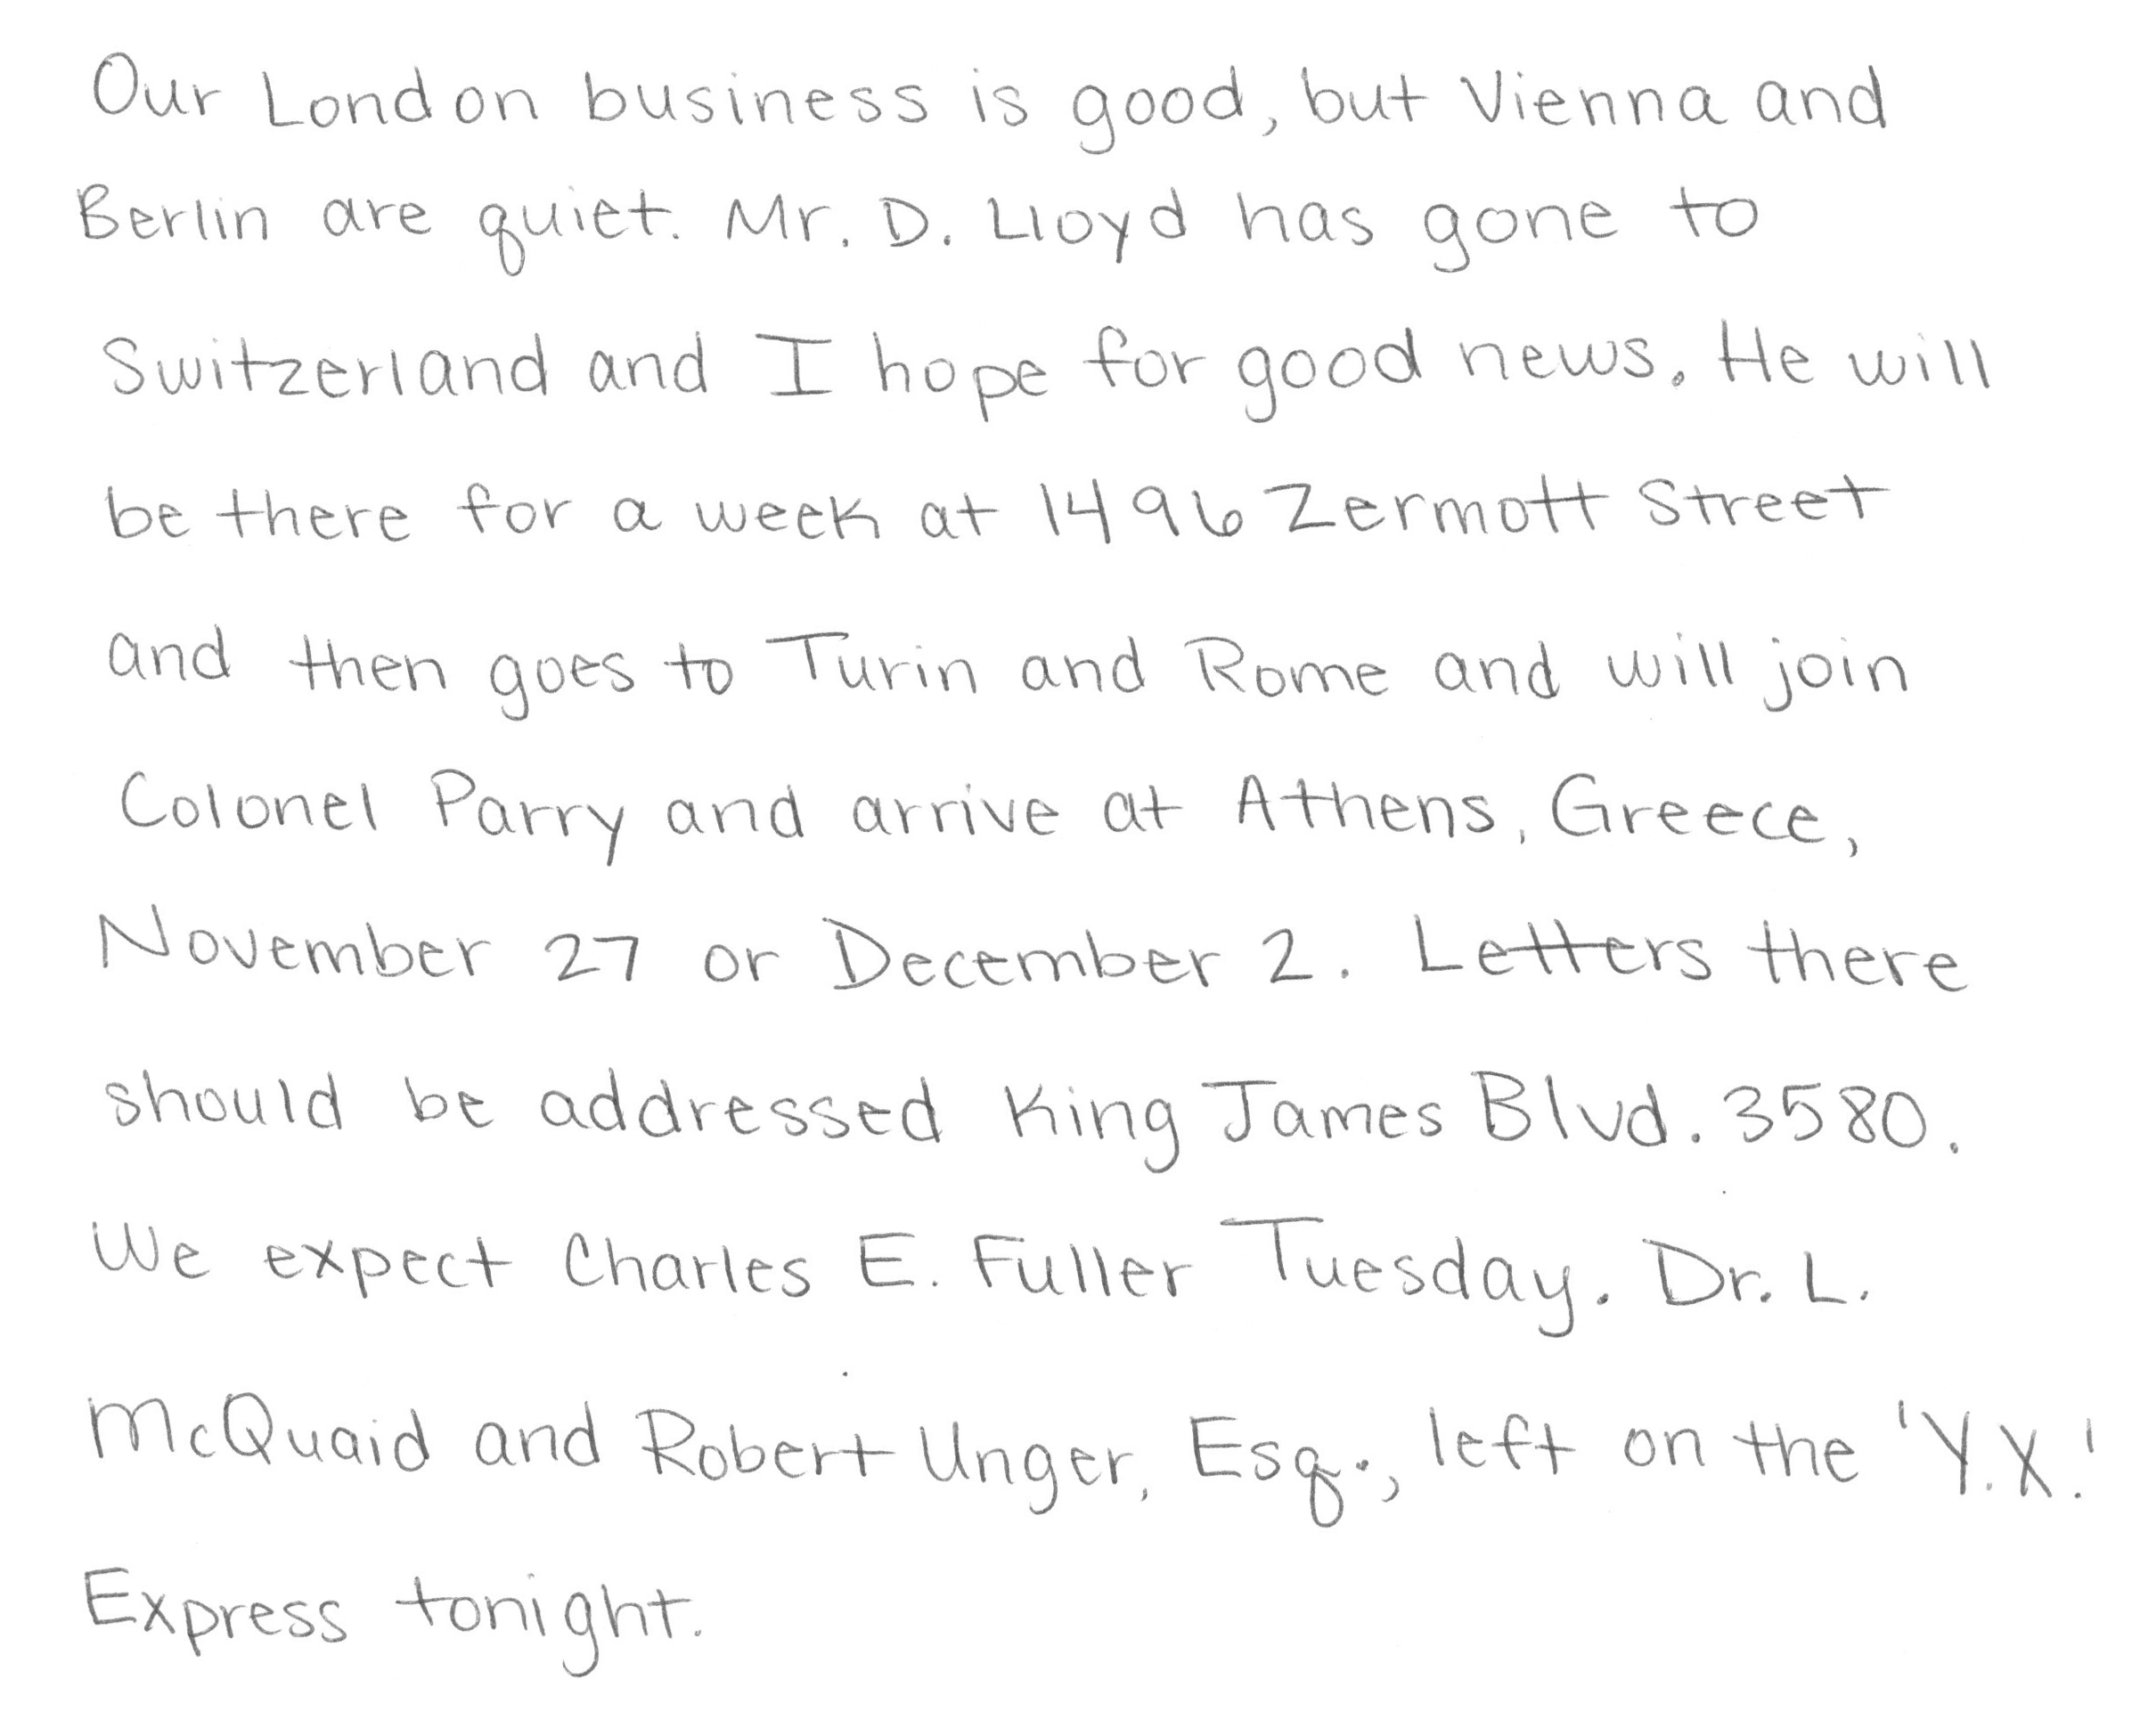 Our London business is good, but Vienna and
Berlin are quiet. Mr. D. Lloyd has gone to
Switzerland and I hope for good news. He will
be there for a week at 1496 Zermott Street
and then goes to Turin and Rome and will join
Colonel Parry and arrive at Athens, Greece,
November 27 or December 2. Letters there
should be addressed King James Blvd. 3580.
We expect Charles E. Fuller Tuesday. Dr. L.
McQuaid and Robert Unger, Esq., left on the 'Y.X.'
Express tonight.